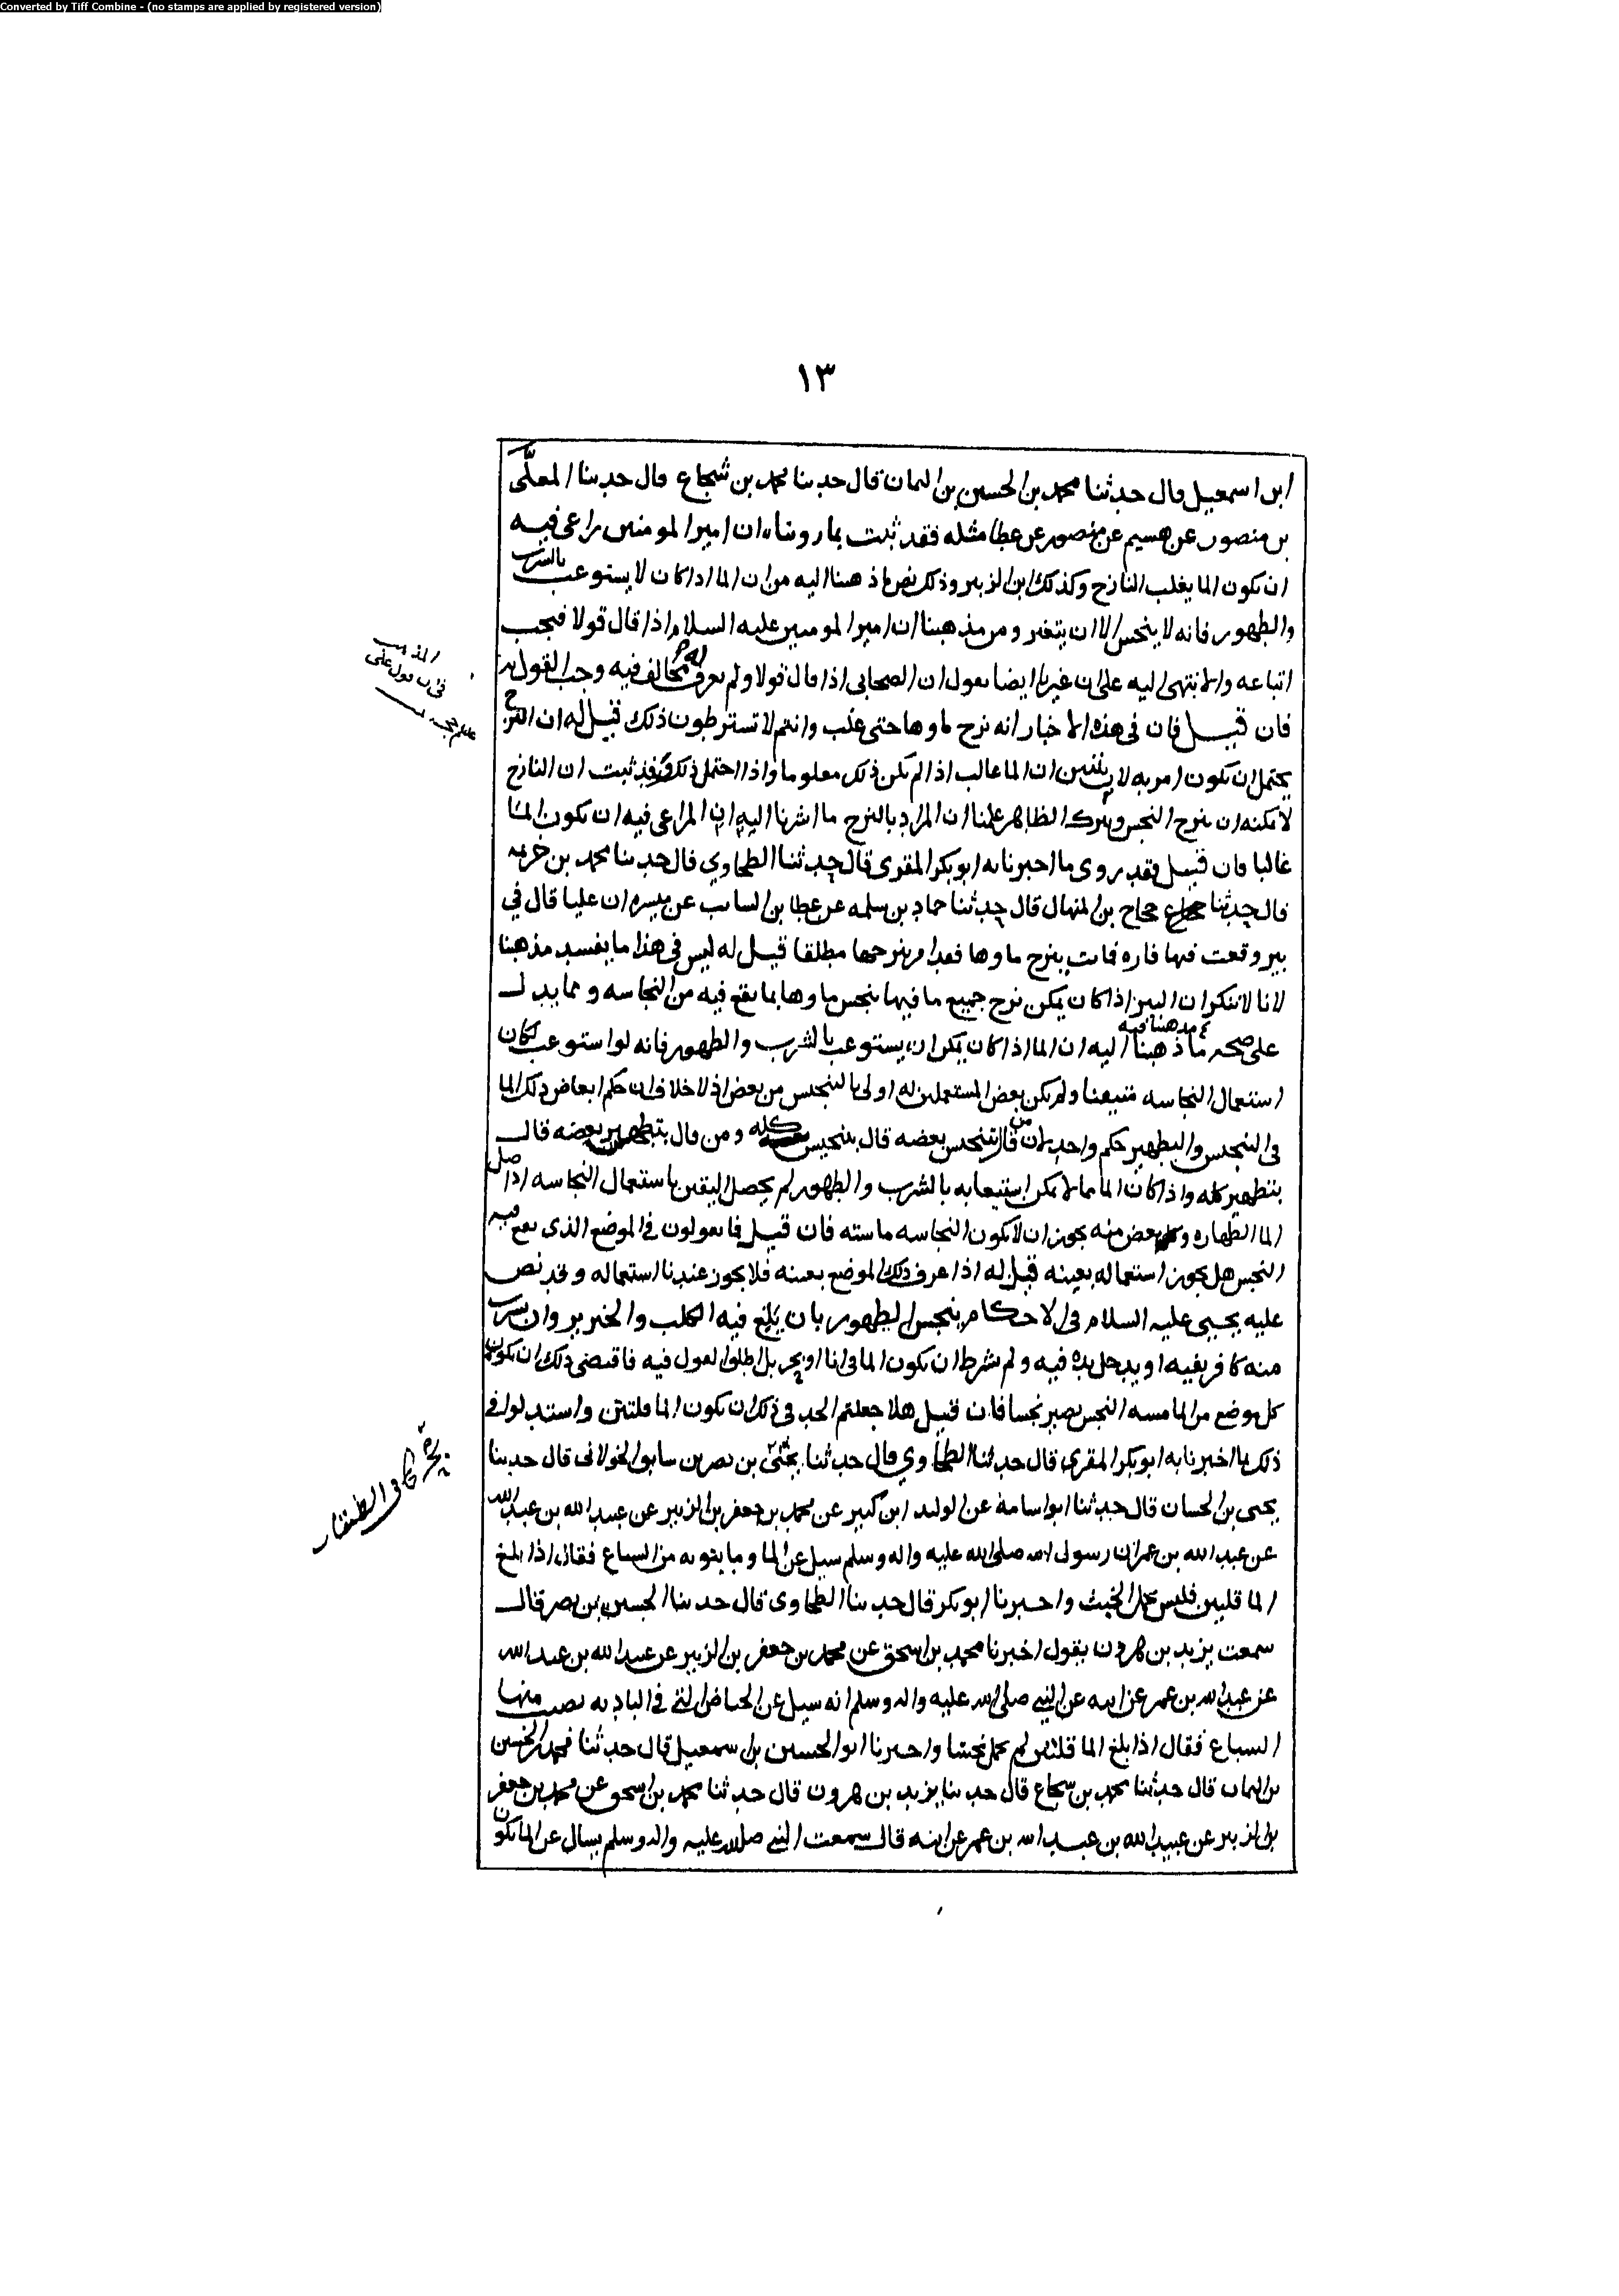 Converted by Tiff Combine - (no stamps are applied by registered version)
١٣
ابن اسمعيل قال حدثنا محمد بن الحسين بن اليمان قال حدثنا محمد بن شجاع قال حدثنا المعلّى
بن منصور عن هشيم عن منصور عن عطا مثله فقد ثبت بما روينا ان امير المومنين راعى فيه
ان يكون الما يغلب النازح وكذلك ابن الزبير وذلك نص ما ذهبنا اليه من ان الما اذا كان لا يستوعب بالشرب
والطهور فانه لا ينجس الا ان يتغير ومن مذهبنا ان امير المومنين عليه السلام اذا قال قولا فيجب
اتباعه والانتهى اليه على ان غيرنا ايضا يقول ان الصحابي اذا قال قولا ولم يعرف له مخالف فيه وجب القول به
فان قيل فان في هذه الاخبار انه نزح ماوها حتى غلب وانتم لا تشترطون ذلك قيل له ان النزح
يحتمل ان يكون امر به لا يتبين ان الما غالب اذا لم يكن ذلك معلوما واذا احتمل ذلك وقد ثبت ان النازح
لا يمكنه ان ينزح النجس ويترك الظاهر علمنا ان المراد بالنزح ما اشرنا اليه ان المراعى فيه ان يكون الما
غالبا فان قيل فقد روى ما اخبرنا به ابو بكر المقري قال حدثنا الطحاوي قال حدثنا محمد بن خزيمه
قال حدثنا حجاج بن المنهال قال حدثنا حماد بن سلمه عن عطا بن السائب عن ميسره ان عليا قال في
بير وقعت فيها فاره فماتت ينزح ماوها فقد امر بنزحها مطلقا قيل له ليس في هذا ما يفسد مذهبنا
لانا لا ننكر ان البير اذا كان يمكن نزح جميع ما فيها ينجس ماوها بما يقع فيه من النجاسه ومما يدل
على صحه ما ذهبنا اليه ان الما اذا كان يمكن ان يستوعب بالشرب والطهور فانه لو استوعب لكان
مذهبنا فيه
استعمال النجاسه متيقنا ولم يكن بعض المستعملين له اولى بالتنجس من بعض اذ لا خلاف ان حكم ابعاض ذلك الما
في التنجس والتطهير حكم واحد لان من قال بتنجس بعضه قال بتنجيس كله ومن قال بتطهير بعضه قال
بتطهير كله واذا كان الما مما لا يمكن استيعابه بالشرب والطهور لم يحصل اليقين باستعمال النجاسه اذ اصل
الما الطهاره وكل بعض منه يجوز ان لا يكون النجاسه ماسته فان قيل فما تقولون في الموضع الذي يقع فيه
النجس هل يجوز استعماله بعينه قيل له اذا عرف ذلك الموضع بعينه فلا يجوز عندنا استعماله وقد نص
عليه يحيى عليه السلام في الاحكام بنجس الطهور بان يلغ فيه الكلب والخنزير وان يشرب
منه كافر بفيه او يدخل يده فيه ولم يشرط ان يكون الما في انا او بحر بل اطلق القول فيه فاقتضى ذلك ان يكون
كل موضع من الما مسه النجس يصير نجسا فان قيل هلا جعلتم الحد في ذلك ان يكون الما قلتين واستدلوا في
ذلك بما اخبرنا به ابو بكر المقري قال حدثنا الطحاوي قال حدثنا بحر بن نصر بن سابق الخولاني قال حدثنا
يحيى بن الحسان قال حدثنا ابو اسامة عن الوليد ابن كثير عن محمد بن جعفر بن الزبير عن عبيد الله بن عبد الله
عن عبد الله بن عمر ان رسول الله صلى الله عليه واله وسلم سيل عن الما وما ينوبه من السباع فقال اذا بلغ
الما قلتين فليس يحمل الخبث واخبرنا ابو بكر قال حدثنا الطحاوي قال حدثنا الحسين بن نصر قال
سمعت يزيد بن هرون يقول اخبرنا محمد بن اسحق عن محمد بن جعفر بن الزبير عن عبيد الله بن عبد الله
عن عبد الله بن عمر عن ابيه عن النبي صلى الله عليه واله وسلم انه سيل عن الحياض التي في الباديه تصيب منها
السباع فقال اذا بلغ الما قلتين لم يحمل نجسا واخبرنا ابو الحسين بن اسمعيل قال حدثنا محمد بن الحسين
بن اليمان قال حدثنا محمد بن شجاع قال حدثنا يزيد بن هرون قال حدثنا محمد بن اسحق عن محمد بن جعفر
بن الزبير عن عبيد الله بن عبد الله بن عمر عن ابيه قال سمعت النبي صلى الله عليه واله وسلم يسال عن الما يكون
المذهب
في ان قول على